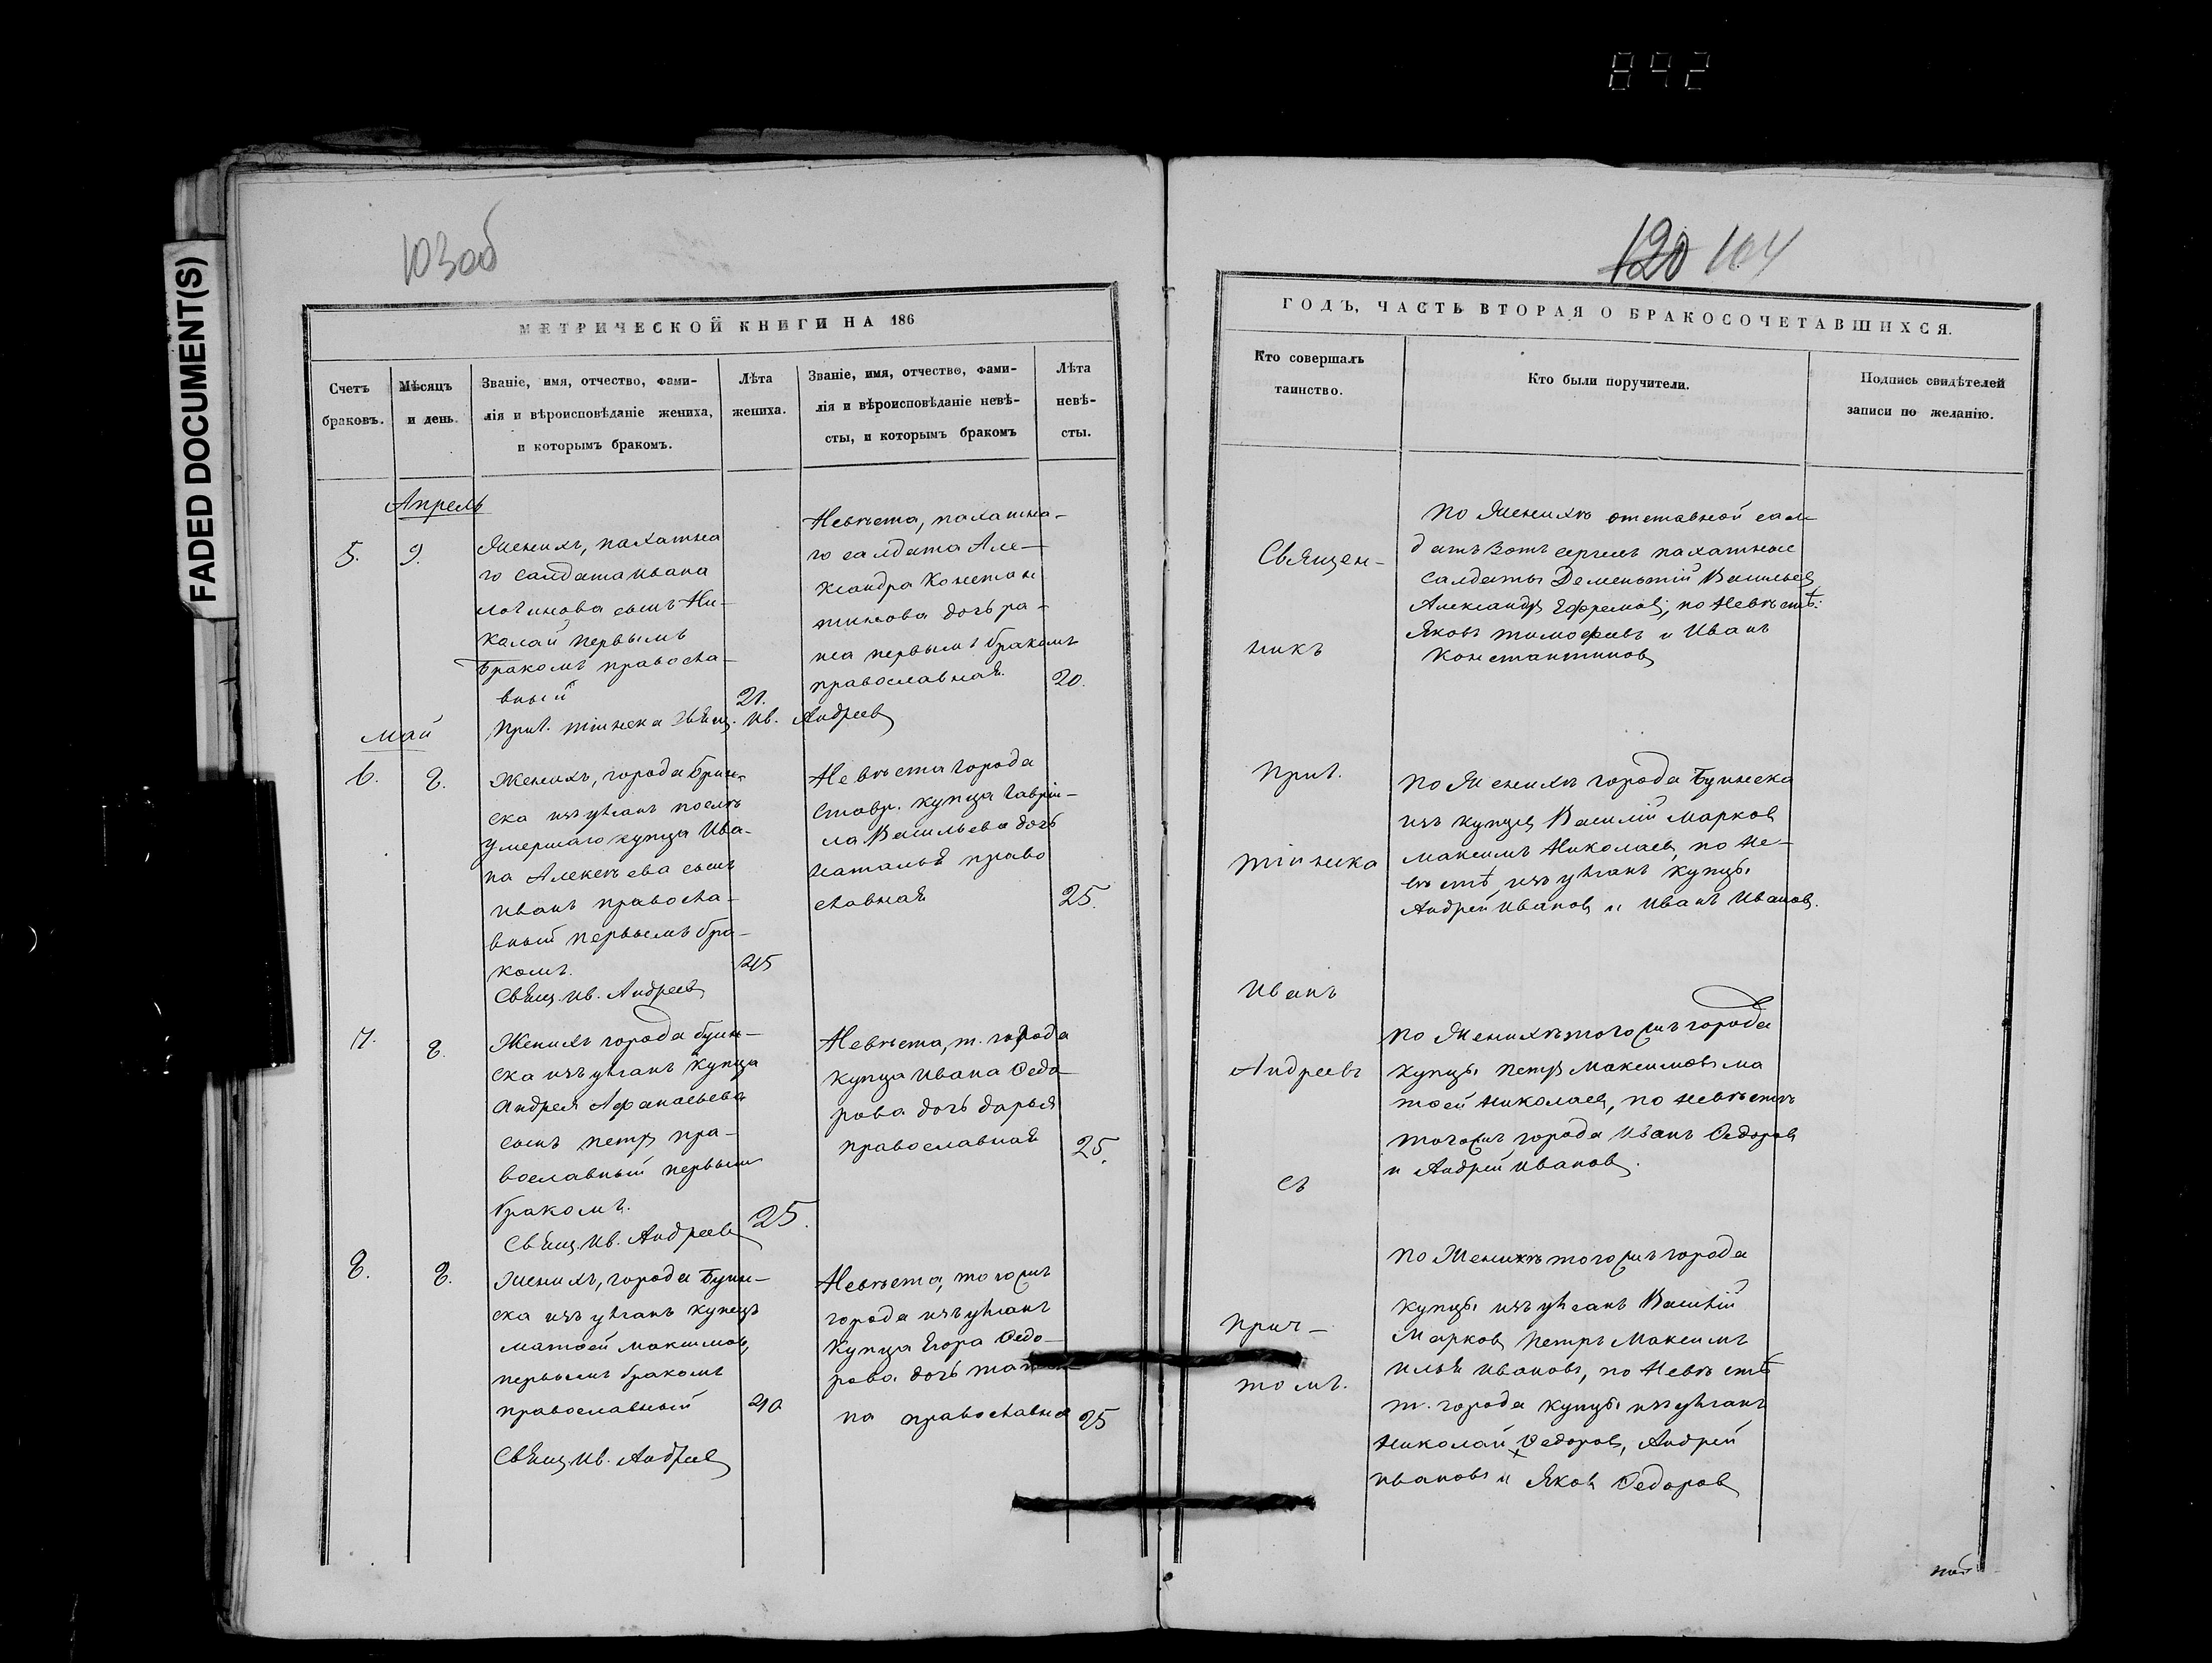 892
FADED DOCUMENT(S)
103об
МЕТРИЧЕСКОЙ КНИГИ НА 186
Счетъ браковъ.
Мѣсяцъ и день.
Званіе, имя, отчество, фами-
лія и вѣроисповѣданіе жениха,
и которымъ бракомъ.
Лѣта
жениха.
Званіе, имя, отчество, фами-
лія и вѣроисповѣданіе невѣ-
сты, и которымъ бракомъ
Лѣта
невѣ-
сты.
Апрель
5. 9.
Женихъ, пахатна
го салдата Ивана
Логинова сынъ Ни-
колай первымъ
бракомъ правосла-
вный
21.
Невѣста, пахатна-
го салдата Але-
ксандра Констан
тинова дочь
первымъ бракомъ
православная.
20.
Свящ. Ив. Андреевъ
Май
6. 8.
Женихъ, города
ска изъ послѣ
умершаго купца Ива-
на Алексѣева сынъ
Иванъ правосла-
вный первымъ бра-
комъ.
Свящ. Ив. Андреевъ
Невѣста города
купца Гаврi-
ла Васильева дочь
Наталья право
славная
25.
7. 8.
Женихъ города Буин-
ска изъ купца
Андрея Афанасьева
сынъ Петръ пра-
вославный первымъ
бракомъ.
25.
Свящ. Ив. Андреевъ
Невѣста, т. города
купца Ивана Федо-
рова дочь Дарья
православная
25.
8. 8.
Женихъ, города Буин-
ска изъ купецъ
Матвей Максимовъ,
первымъ бракомъ
православный
Свящ. Ив. Андреевъ
Невѣста, тогожъ
города изъ
купца Егора Федо-
рова дочь
на православна
25
120 104
ГОДЪ, ЧАСТЬ ВТОРАЯ О БРАКОСОЧЕТАВШИХСЯ.
Кто совершалъ
таинство.
Кто были поручители.
Подпись свидѣтелей
записи по желанію.
Священ-
никъ
Иванъ
Андреевъ
съ
Прич-
томъ.
По Женихѣ отставной сал-
датъ пахатные
салдаты Дементій Васильевъ
Александръ Ефремовъ, по Невѣстѣ:
Яковъ Тимофеевъ и Иванъ
Константиновъ
По Женихѣ города Буинска
изъ купцевъ Василій Марковъ
Максимъ Николаевъ, по Не-
вѣстѣ, изъ купцы
Андрей Ивановъ и Иванъ Ивановъ.
По Женихѣ тогожъ города
купцы Петръ Максимовъ Ма
твей Николаевъ, по Невѣстѣ
тогожъ города Иванъ Федоровъ
и Андрей Ивановъ.
По Женихѣ тогожъ города
купцы изъ Василій
Марковъ Петръ Максимъ
Илья Ивановъ, по Невѣстѣ
т. города купцы изъ
Николай Федоровъ, Андрей
Ивановъ и Яковъ Федоровъ